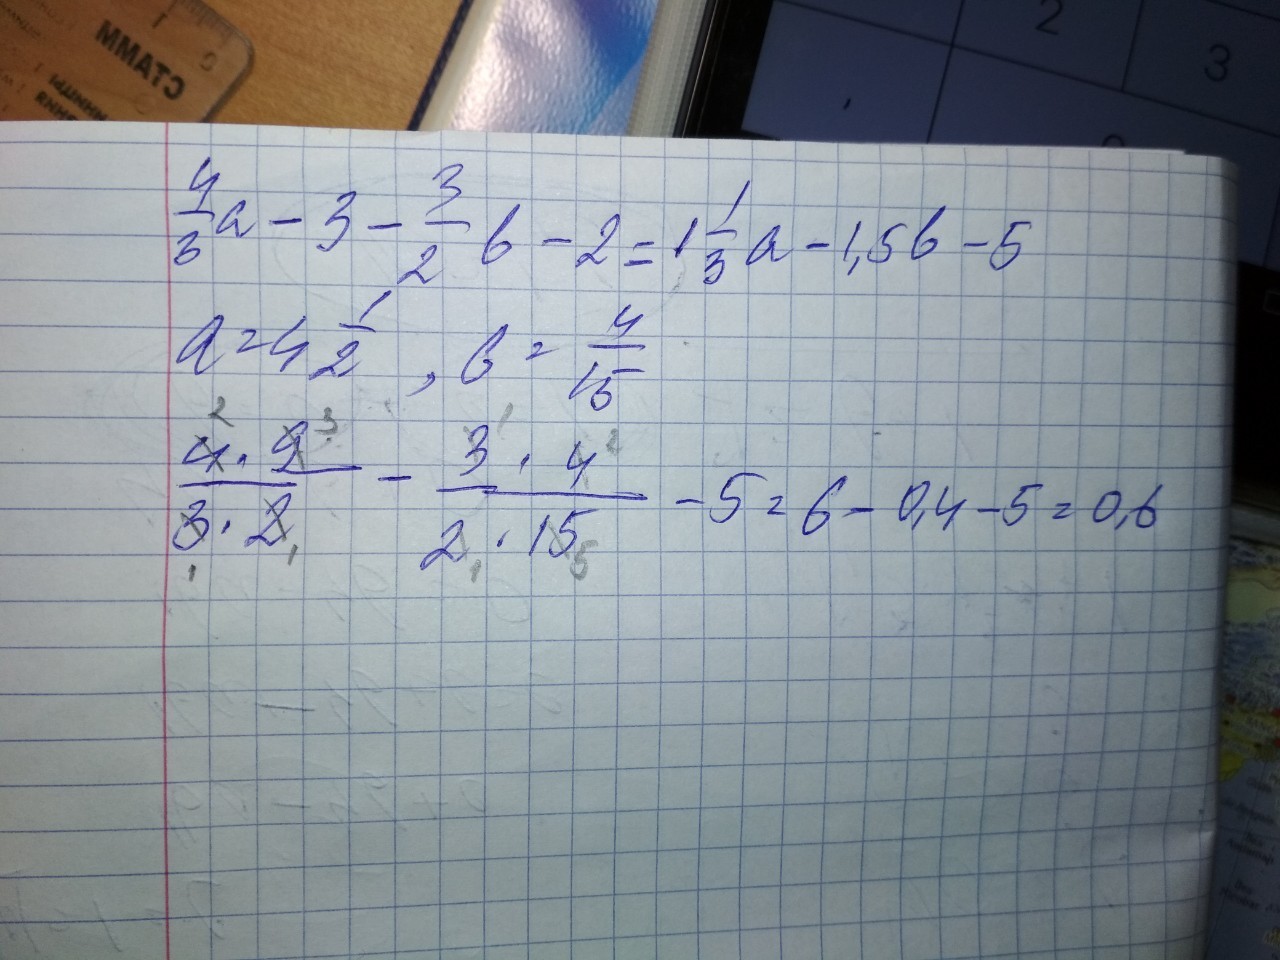 СТАММ
0
1
2
3
4/3 a - 3 - 3/2 b - 2 = 1 1/3 a - 1,5b - 5
a = 4 1/2 , b = 4/15
4 · 9 / 3 · 2 - 3 · 4 / 2 · 15 - 5 = 6 - 0,4 - 5 = 0,6